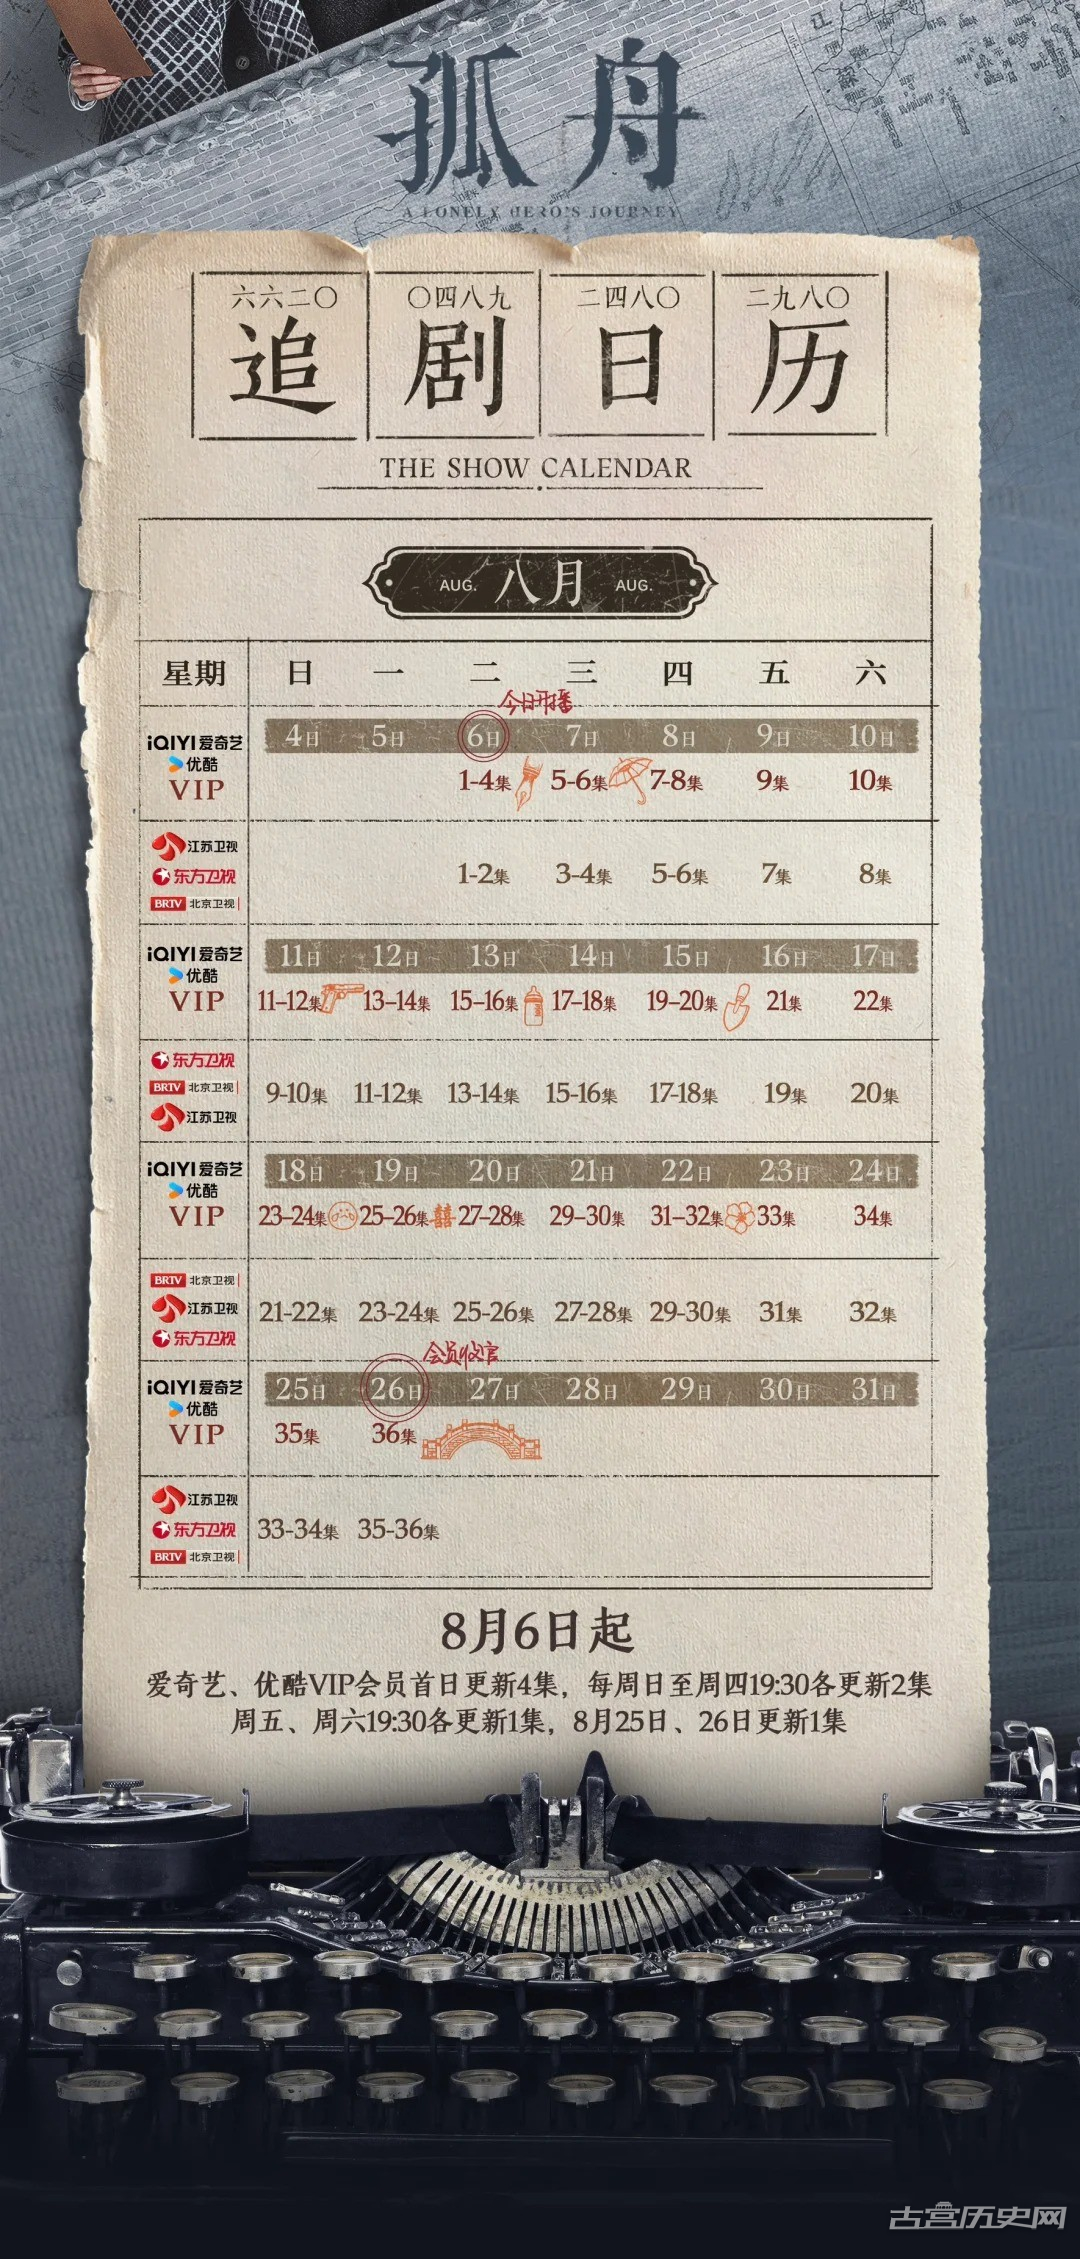 孤舟
A LONELY HERO'S JOURNEY
六六二〇 〇四八九 二四八〇 二九八〇
追剧日历
THE SHOW CALENDAR
AUG. 八月 AUG.
星期 日 一 二 三 四 五 六
今日开播
iQIYI 爱奇艺 4日 5日 6日 7日 8日 9日 10日
优酷
VIP 1-4集 5-6集 7-8集 9集 10集
江苏卫视
东方卫视 1-2集 3-4集 5-6集 7集 8集
BRTV 北京卫视
iQIYI 爱奇艺 11日 12日 13日 14日 15日 16日 17日
优酷
VIP 11-12集 13-14集 15-16集 17-18集 19-20集 21集 22集
东方卫视
BRTV 北京卫视 9-10集 11-12集 13-14集 15-16集 17-18集 19集 20集
江苏卫视
iQIYI 爱奇艺 18日 19日 20日 21日 22日 23日 24日
优酷
VIP 23-24集 25-26集 囍 27-28集 29-30集 31-32集 33集 34集
BRTV 北京卫视
江苏卫视 21-22集 23-24集 25-26集 27-28集 29-30集 31集 32集
东方卫视
会员收官
iQIYI 爱奇艺 25日 26日 27日 28日 29日 30日 31日
优酷
VIP 35集 36集
江苏卫视
东方卫视 33-34集 35-36集
BRTV 北京卫视
8月6日起
爱奇艺、优酷VIP会员首日更新4集，每周日至周四19:30各更新2集
周五、周六19:30各更新1集，8月25日、26日更新1集
古宫历史网